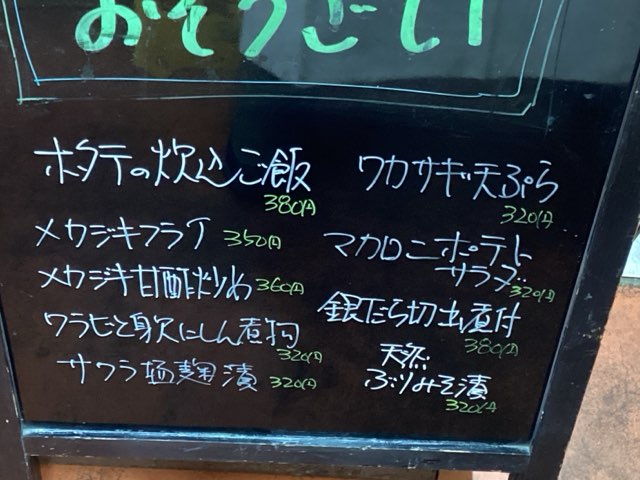 おそうざい
ホタテの炊込ご飯
380円
メカジキフライ 350円
メカジキ甘酢炒め 360円
ワラビと身欠にしん煮物
320円
サワラ塩麹漬 320円
ワカサギ天ぷら
320円
マカロニポテト
サラダ
320円
銀だら切出煮付
380円
天然
ぶりみそ漬
320円